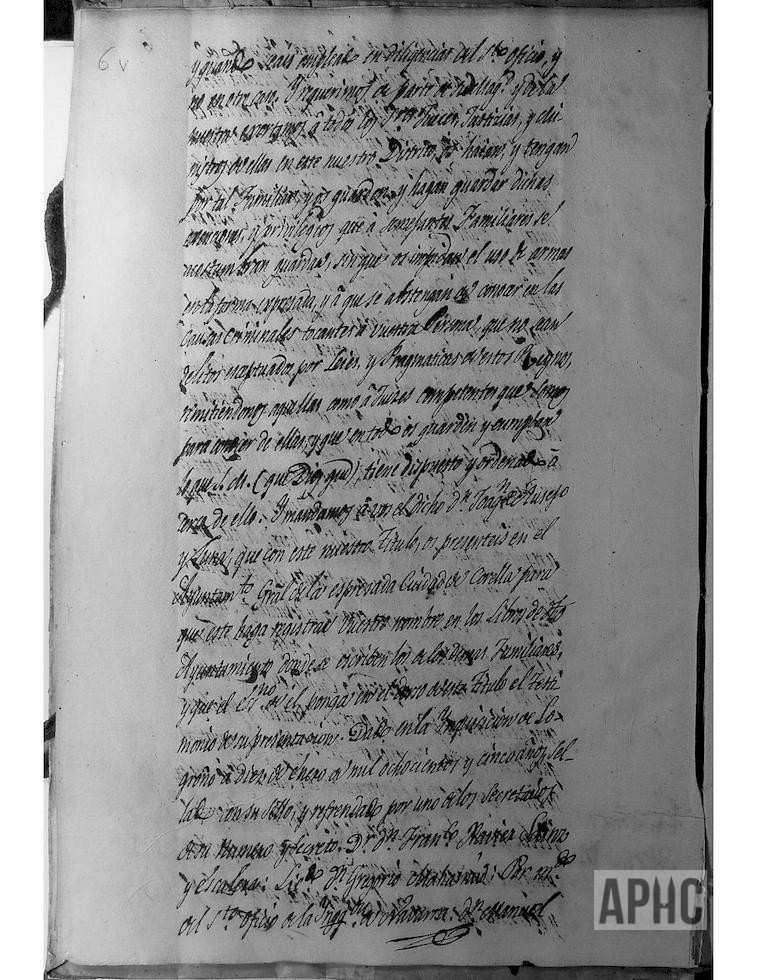 6 v
y quando seais empleado en diligencias del Sto oficio, y
no en otro caso. Y requerimos de parte de su Magd y de la
nuestra exortamos a todos los Jueces, Justicias, y Mi-
nistros de ellas en este nuestro Distrito, os haian, y tengan
por tal Familiar, y os guarden, y hagan guardar dichas
exenciones, y privilegios que à semejantes Familiares se
acostumbran guardar, sin que os impidan el uso de armas
en la forma expresada, y à que se abstengan de conocer en las
Causas Criminales tocantes à vuestra Persona, que no sean
delitos exceptuados por Leies, y Pragmaticas de estos Reynos,
remitiendonos aquellas como à Jueces competentes que somos
para conocer de ellas, y que en todo os guarden y cumplan
lo que S. M. (que Dios gue) tiene dispuesto y ordenado à
cerca de ello. Y mandamos à vos el Dicho dn
y Luna, que con este nuestro Titulo, os presenteis en el
Ayuntamto Gral de la espresada Ciudad de Corella para
que este haga registrar vuestro nombre en los Libros de dho
Ayuntamiento donde se escriben los de los demas Familiares,
y que el Esno de el ponga en el dorso de este Titulo el Testi-
monio de su presentacion. Dado en la Inquisicion de Lo-
groño à diez de enero de mil ochocientos y cinco años, Sel-
lado con su Sello, y refrendado por uno de los Secretarios
de su Numero y Secreto. Dr dn Franco Xavier Sainz
y escalona: Licdo Dn Gregorio : Por mdo
del Sto oficio de la Inqqon de Navarra: dn Manuel
APHC